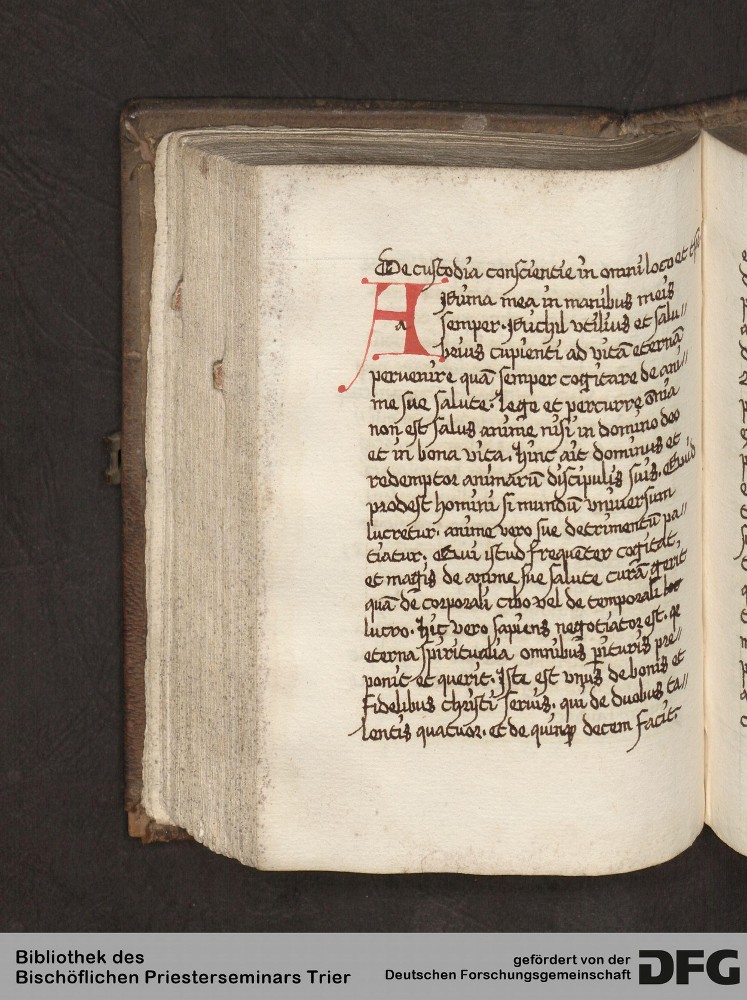 De custodia consciencie in omni loco et tp̄e
A Nima mea in manibus meis
a semper. Nichil vtilius et salu//
brius cupienti ad vitā eternā
pervenire quā semper cogitare de ani//
me sue salute. Lege et percurre ōnia
non est salus anime nisi in domino deo
et in bona vita. Hinc ait dominus et
redemptor animarū discipulis suis. Quid
prodest homini si mundū vniversum
lucretur. anime vero sue detrimentū pa//
tiatur. Qui istud frequenter cogitat,
et magis de anime sue salute curā gerit
quā de corporali cibo vel de temporali
lucro. Hic vero sapiens negotiator est. qe
eterna spiritualia omnibus p̄ituris pre//
ponit et querit. Iste est vnus de bonis et
fidelibus christi servis. qui de duobus ta//
lentis quatuor. et de quinqꝫ decem facit.
Bibliothek des
Bischöflichen Priesterseminars Trier
gefördert von der
Deutschen Forschungsgemeinschaft DFG